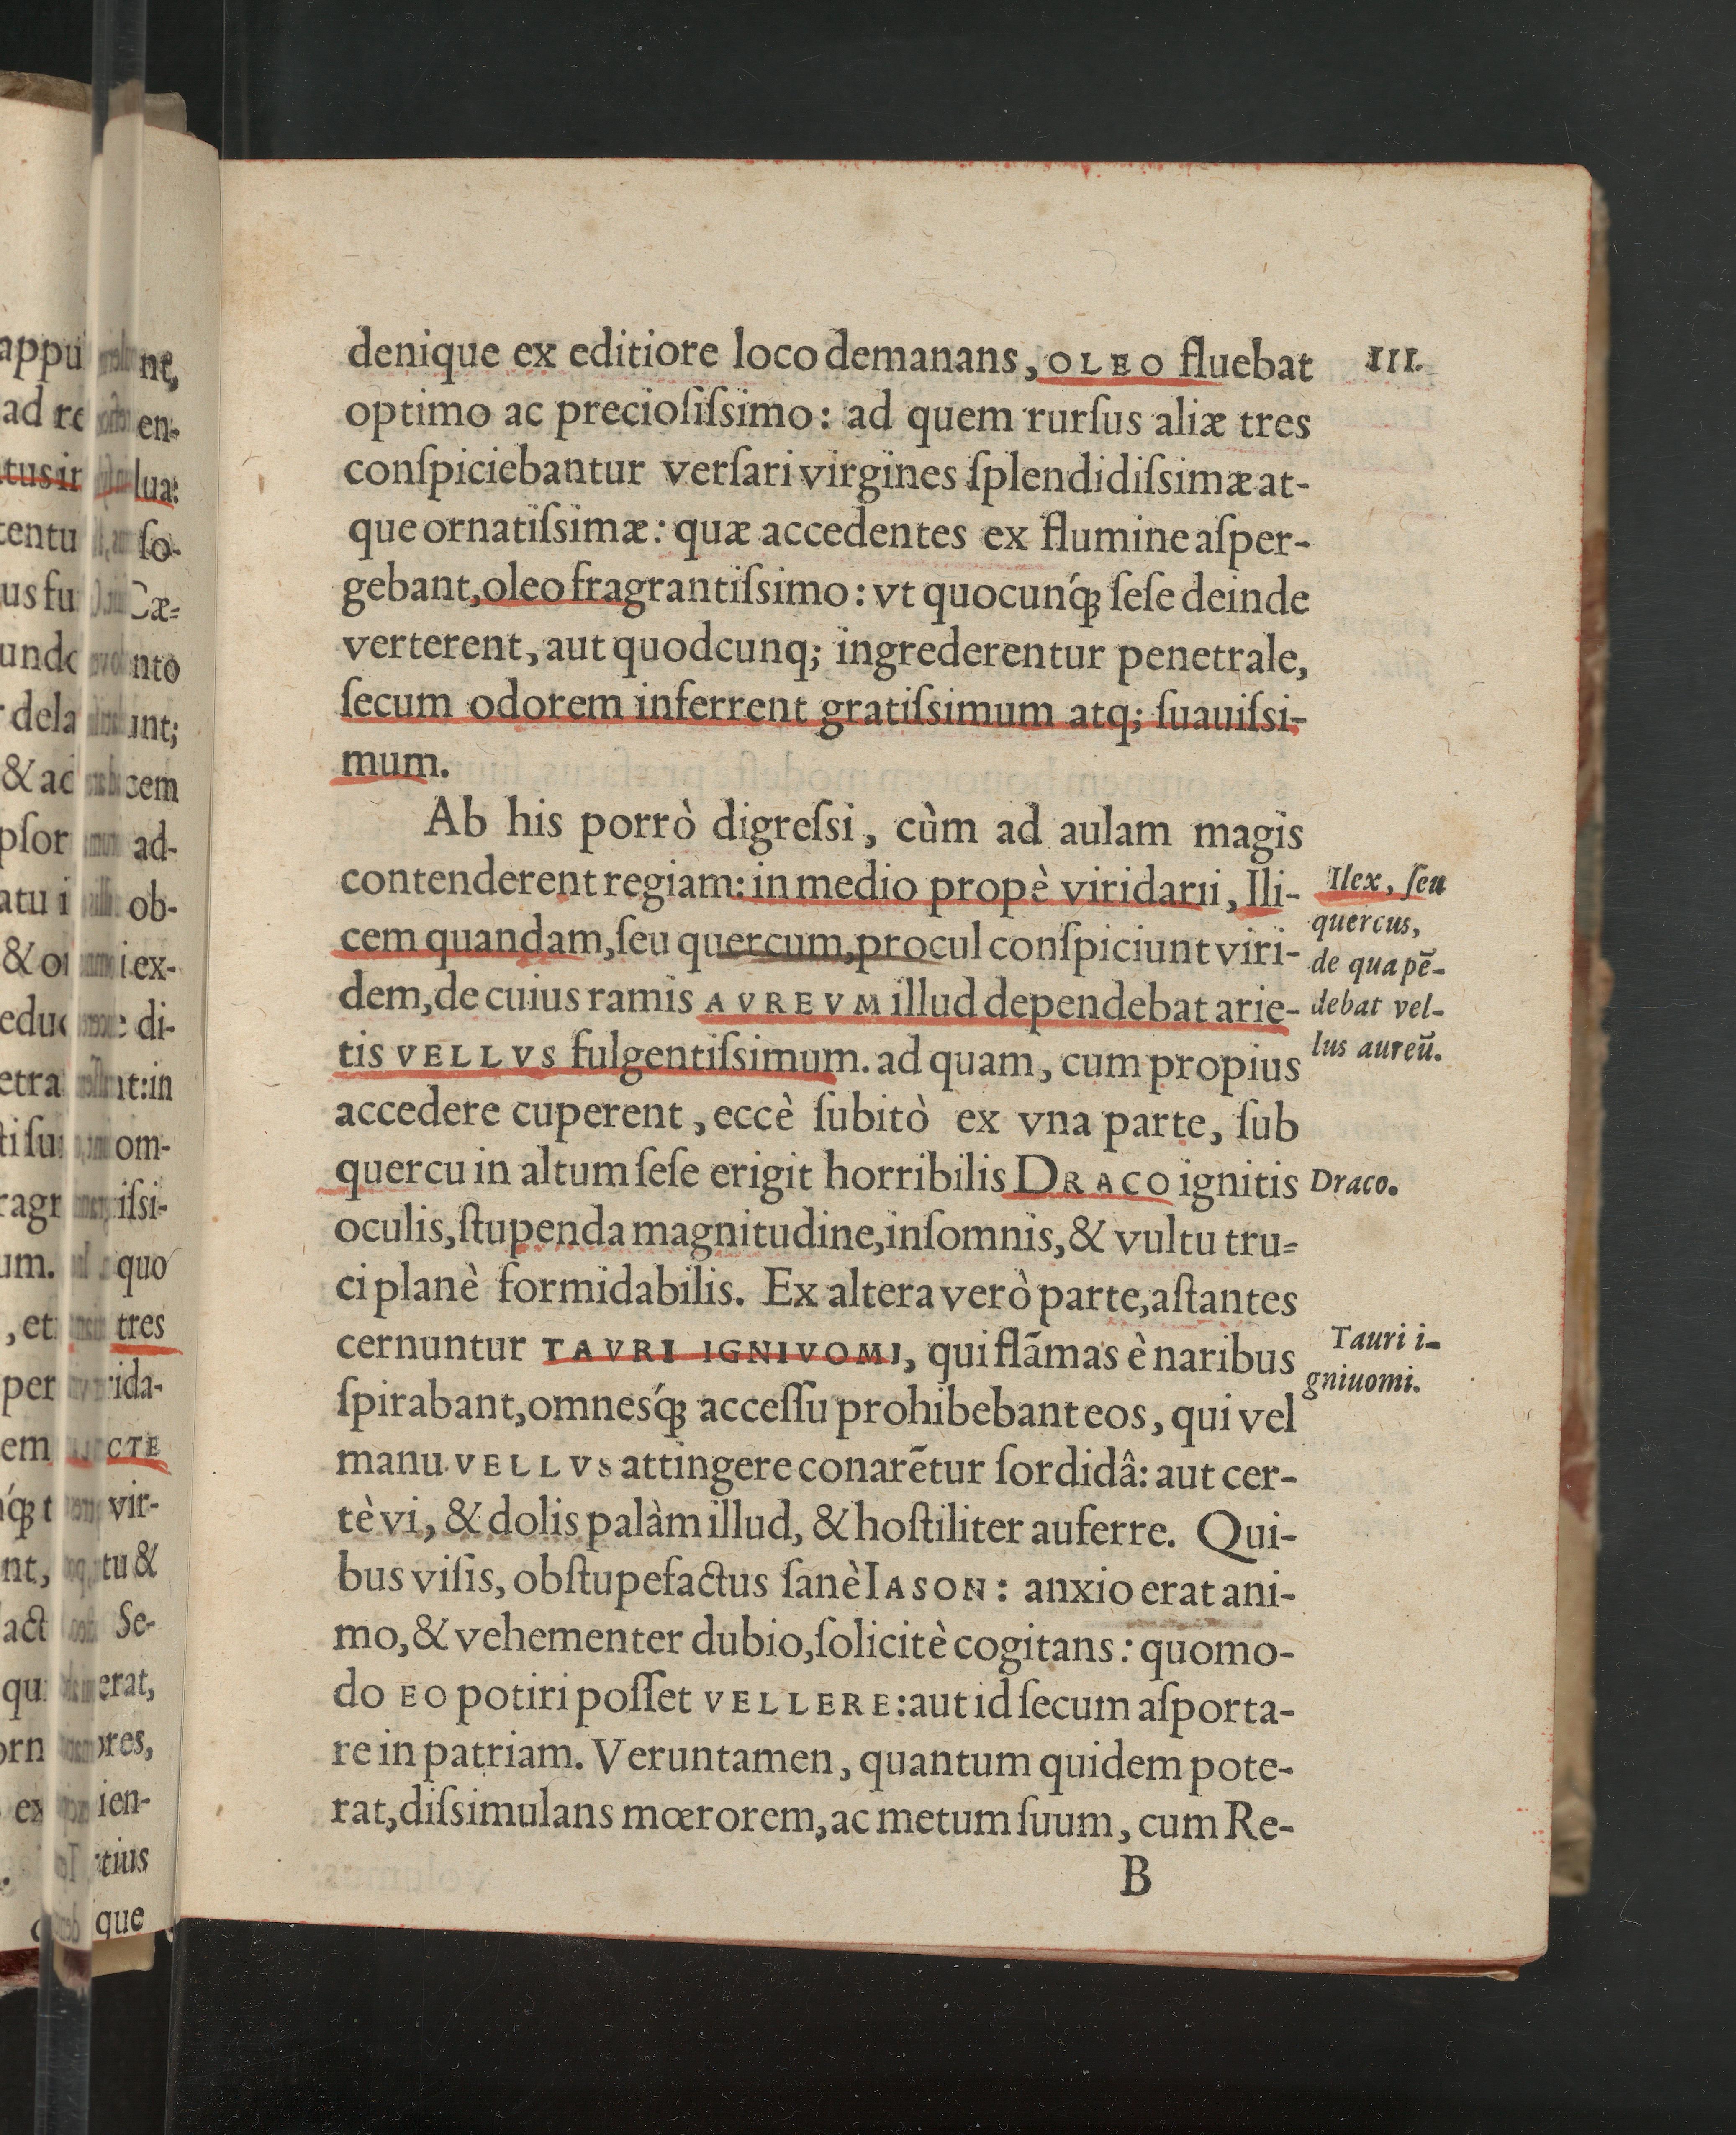 denique ex editiore loco demanans, OLEO fluebat
III.
optimo ac preciosiſsimo: ad quem rurſus aliæ tres
conſpiciebantur verſari virgines ſplendidiſsimæ at-
que ornatiſsimæ: quæ accedentes ex flumine aſper-
gebant, oleo fragrantiſsimo: vt quocunq́ꝫ ſeſe deinde
verterent, aut quodcunq; ingrederentur penetrale,
ſecum odorem inferrent gratiſsimum atq; ſuauiſsi-
mum.
Ab his porrò digreſsi, cùm ad aulam magis
contenderent regiam: in medio propè viridarii, Ili-
cem quandam, ſeu quercum, procul conſpiciunt viri-
dem, de cuius ramis AVREVM illud dependebat arie-
tis VELLVS fulgentiſsimum. ad quam, cum propius
Ilex, ſeu
quercus,
de qua pē-
debat vel-
lus aureū.
accedere cuperent, eccè ſubitò ex vna parte, ſub
quercu in altum ſeſe erigit horribilis DRACO ignitis
Draco.
oculis, ſtupenda magnitudine, inſomnis, & vultu tru-
ci planè formidabilis. Ex altera verò parte, aſtantes
cernuntur TAVRI IGNIVOMI, qui flãmas è naribus
Tauri i-
gniuomi.
ſpirabant, omnesq́ꝫ acceſſu prohibebant eos, qui vel
manu VELLVS attingere conarētur ſordidâ: aut cer-
tè vi, & dolis palàm illud, & hoſtiliter auferre. Qui-
bus viſis, obſtupefactus ſanè IASON: anxio erat ani-
mo, & vehementer dubio, ſolicitè cogitans: quomo-
do EO potiri poſſet VELLERE: aut id ſecum aſporta-
re in patriam. Veruntamen, quantum quidem pote-
rat, diſsimulans mœrorem, ac metum ſuum, cum Re-
B